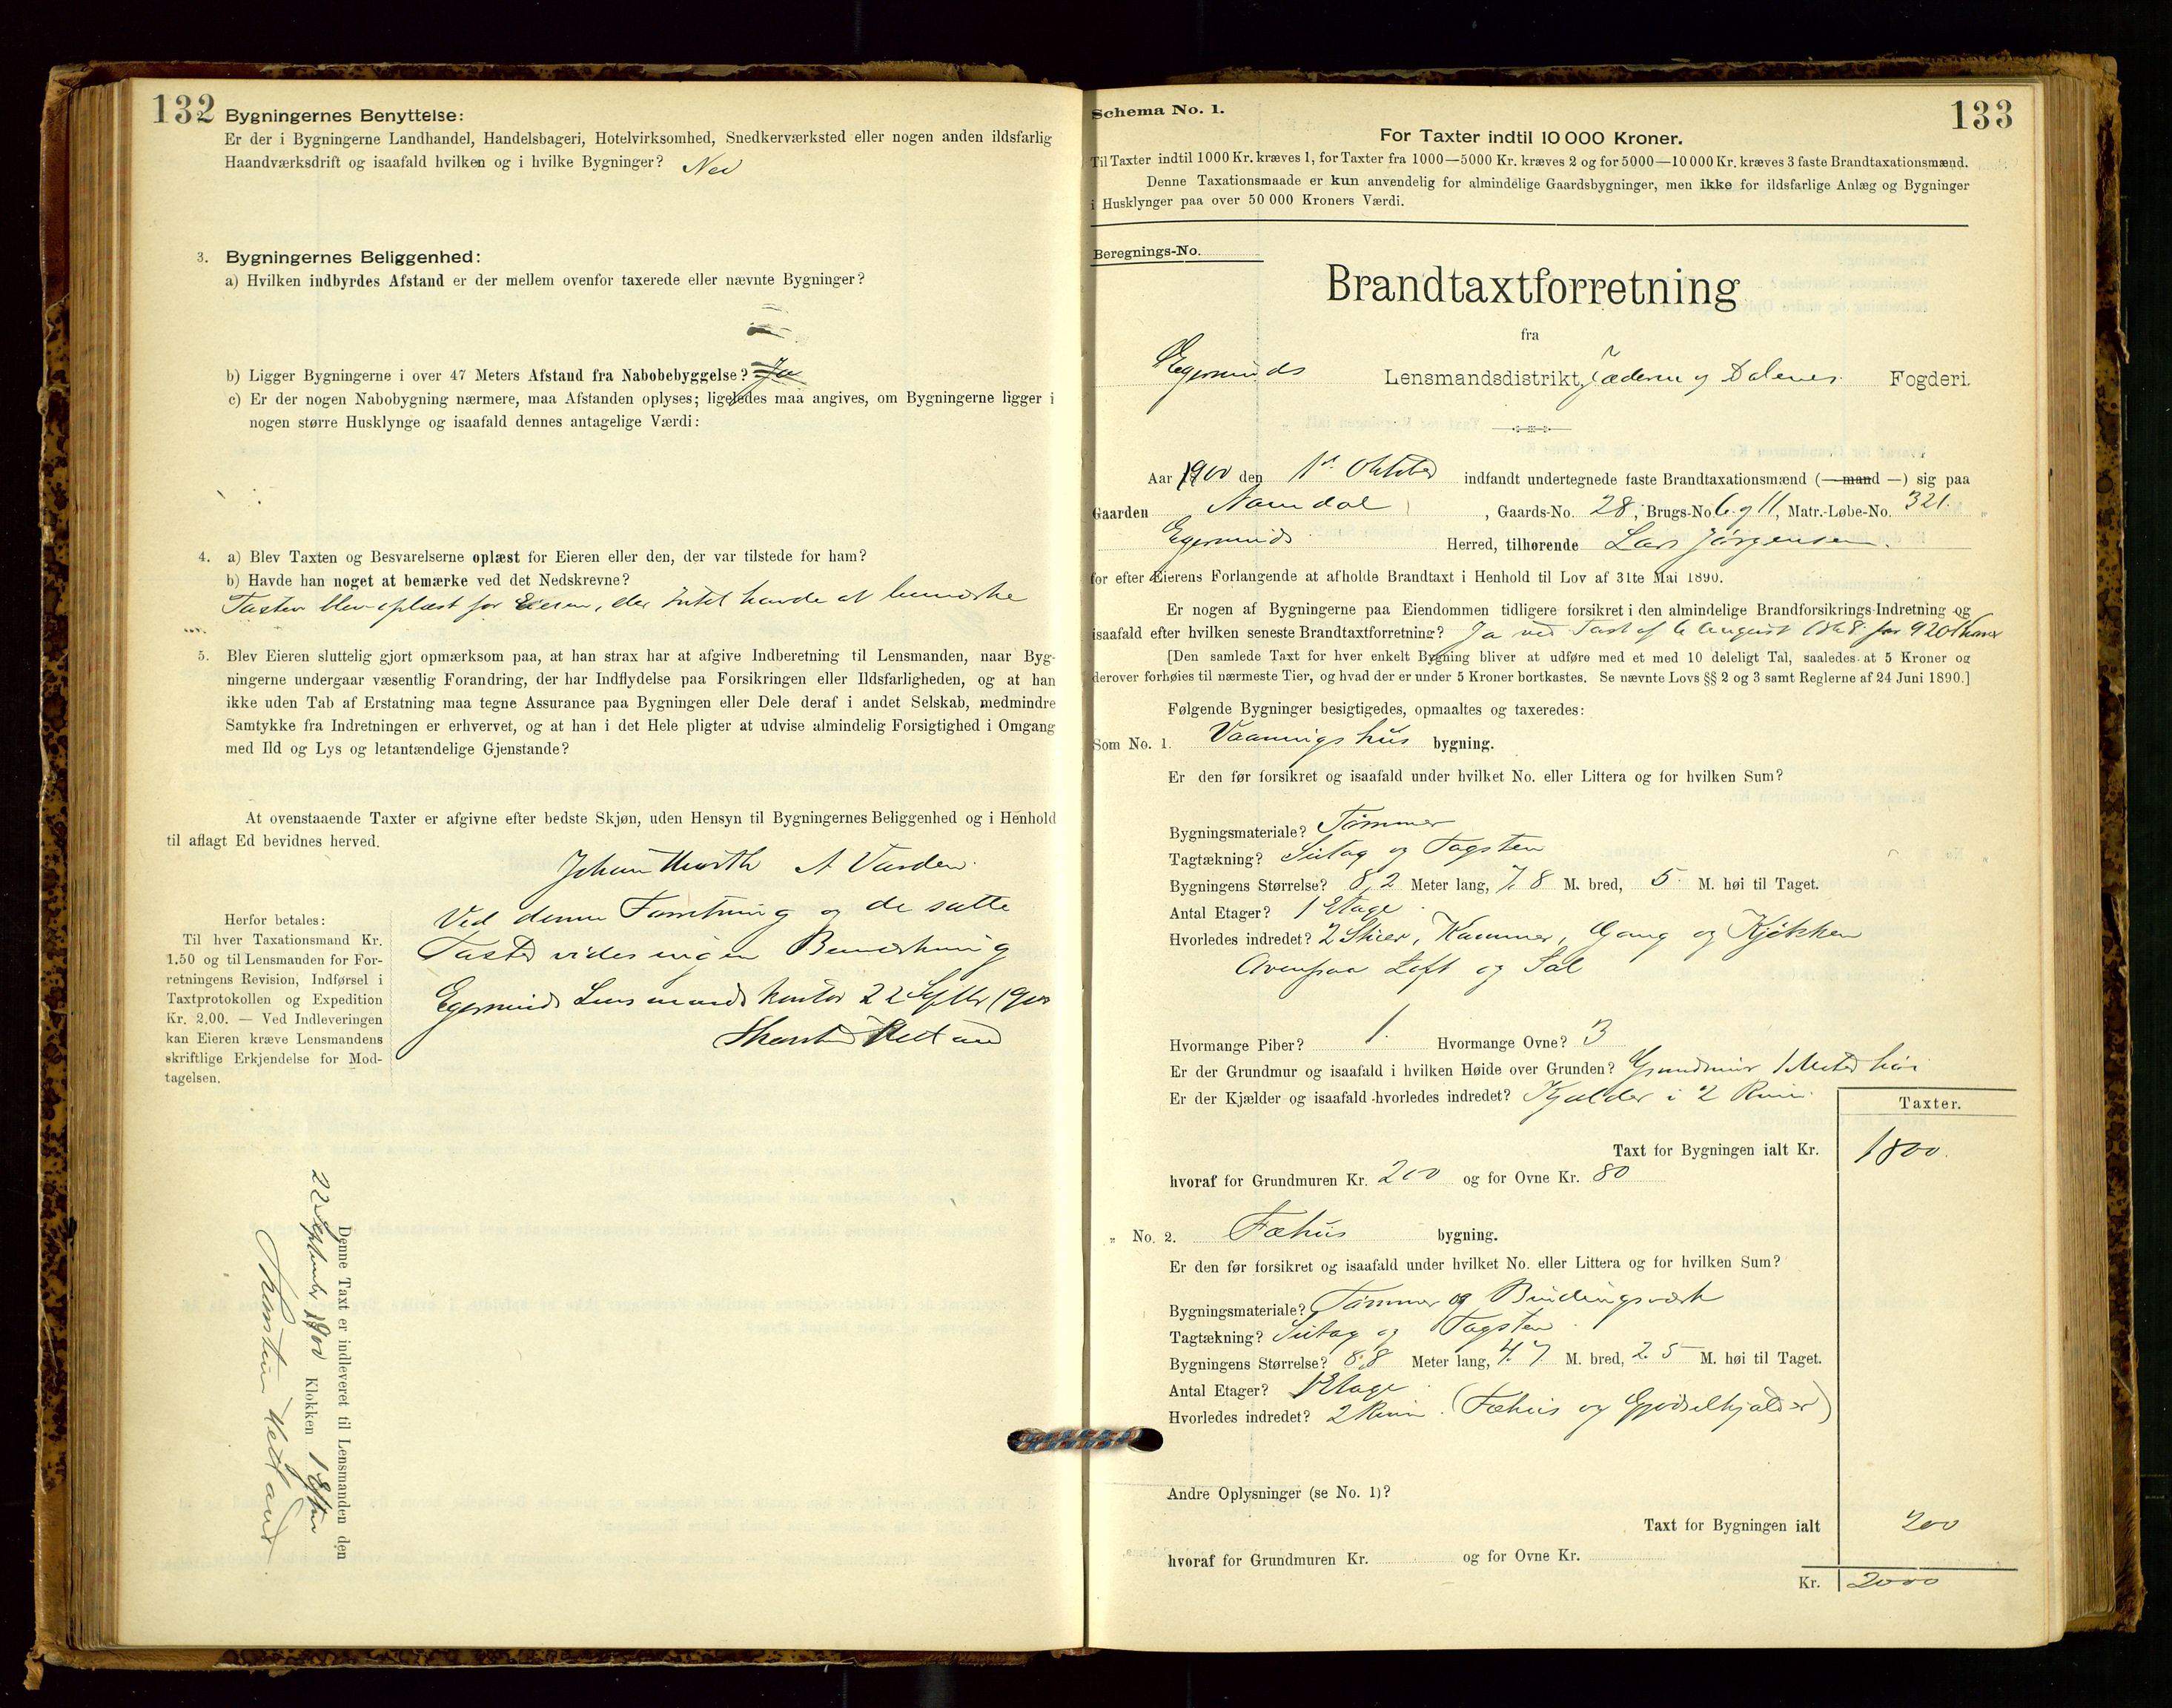 132
Bygningernes Benyttelse:
Er der i Bygningerne Landhandel, Handelsbageri, Hotelvirksomhed, Snedkerværksted eller nogen anden ildsfarlig
Haandværksdrift og isaafald hvilken og i hvilke Bygninger? Nei
3. Bygningernes Beliggenhed:
a) Hvilken indbyrdes Afstand er der mellem ovenfor taxerede eller nævnte Bygninger?
b) Ligger Bygningerne i over 47 Meters Afstand fra Nabobebyggelse? Ja
c) Er der nogen Nabobygning nærmere, maa Afstanden oplyses; ligeledes maa angives, om Bygningerne ligger i
nogen større Husklynge og isaafald dennes antagelige Værdi:
4. a) Blev Taxten og Besvarelserne oplæst for Eieren eller den, der var tilstede for ham?
b) Havde han noget at bemærke ved det Nedskrevne?
Taxten blev oplæst for Eieren, der Intet havde at bemærke
5. Blev Eieren sluttelig gjort opmærksom paa, at han strax har at afgive Indberetning til Lensmanden, naar Byg-
ningerne undergaar væsentlig Forandring, der har Indflydelse paa Forsikringen eller Ildsfarligheden, og at han
ikke uden Tab af Erstatning maa tegne Assurance paa Bygningen eller Dele deraf i andet Selskab, medmindre
Samtykke fra Indretningen er erhvervet, og at han i det Hele pligter at udvise almindelig Forsigtighed i Omgang
med Ild og Lys og letantændelige Gjenstande?
At ovenstaaende Taxter er afgivne efter bedste Skjøn, uden Hensyn til Bygningernes Beliggenhed og i Henhold
til aflagt Ed bevidnes herved.
Johan A Varden
Ved denne Forretning og de satte
Taxter vides ingen Bemærkning
Egersunds Lensmandskontor 22 Septbr 1900
Herfor betales:
Til hver Taxationsmand Kr.
1.50 og til Lensmanden for For-
retningens Revision, Indførsel i
Taxtprotokollen og Expedition
Kr. 2,00. — Ved Indleveringen
kan Eieren kræve Lensmandens
skriftlige Erkjendelse for Mod-
tagelsen.
Denne Taxt er indleveret til Lensmanden den
22 September 1900 Klokken 1 Efter
133
Schema No. 1.
For Taxter indtil 10 000 Kroner.
Til Taxter indtil 1000 Kr. kræves 1, for Taxter fra 1000—5000 Kr. kræves 2 og for 5000—10 000 Kr. kræves 3 faste Brandtaxationsmænd.
Denne Taxationsmaade er kun anvendelig for almindelige Gaardsbygninger, men ikke for ildsfarlige Anlæg og Bygninger
i Husklynger paa over 50 000 Kroners Værdi.
Beregnings-No.
Brandtaxtforretning
fra
Egersunds Lensmandsdistrikt, Jæderen og Dalenes Fogderi.
Aar 1900 den 1ste Oktober indfandt undertegnede faste Brandtaxationsmænd (— mand —) sig paa
Gaarden , Gaards-No. 28, Brugs-No. 6 og 11, Matr.-Løbe-No. 321.
Egersunds Herred, tilhørende Lars Jørgensen.
for efter Eierens Forlangende at afholde Brandtaxt i Henhold til Lov af 31te Mai 1890.
Er nogen af Bygningerne paa Eiendommen tidligere forsikret i den almindelige Brandforsikrings-Indretning og
isaafald efter hvilken seneste Brandtaxtforretning? Ja ved Taxt af 6 August 1868 for 920
[Den samlede Taxt for hver enkelt Bygning bliver at udføre med et med 10 deleligt Tal, saaledes at 5 Kroner og
derover forhøies til nærmeste Tier, og hvad der er under 5 Kroner bortkastes. Se nævnte Lovs §§ 2 og 3 samt Reglerne af 24 Juni 1890.]
Følgende Bygninger besigtigedes, opmaaltes og taxeredes:
Som No. 1. Vaaningshus bygning.
Er den før forsikret og isaafald under hvilket No. eller Littera og for hvilken Sum?
Bygningsmateriale? Tømmer
Tagtækning? Sutag og Tagsten
Bygningens Størrelse? 8,2 Meter lang, 7,8 M. bred, 5 M. høi til Taget.
Antal Etager? 1 Etage
Hvorledes indredet? 2 Stuer, Kammer, Gang og Kjøkken
Ovenpaa Loft og Sal
Hvormange Piber? 1. Hvormange Ovne? 3
Er der Grundmur og isaafald i hvilken Høide over Grunden? Grundmur 1 Meter høi
Er der Kjælder og isaafald hvorledes indredet? Kjælder i 2 Rum
Taxter.
Taxt for Bygningen ialt Kr. 1800.
hvoraf for Grundmuren Kr. 200 og for Ovne Kr. 80
„ No. 2. Fæhus bygning.
Er den før forsikret og isaafald under hvilket No. eller Littera og for hvilken Sum?
Bygningsmateriale? Tømmer og Bindingsværk
Tagtækning? Sutag og Tagsten
Bygningens Størrelse? 8,8 Meter lang, 4,7 M. bred, 2,5 M. høi til Taget.
Antal Etager? 1 Etage
Hvorledes indredet? 2 Rum (Fæhus og Gjødselkjælder)
Andre Oplysninger (se No. 1)?
Taxt for Bygningen ialt 200
hvoraf for Grundmuren Kr. og for Ovne Kr.
Kr. 2000